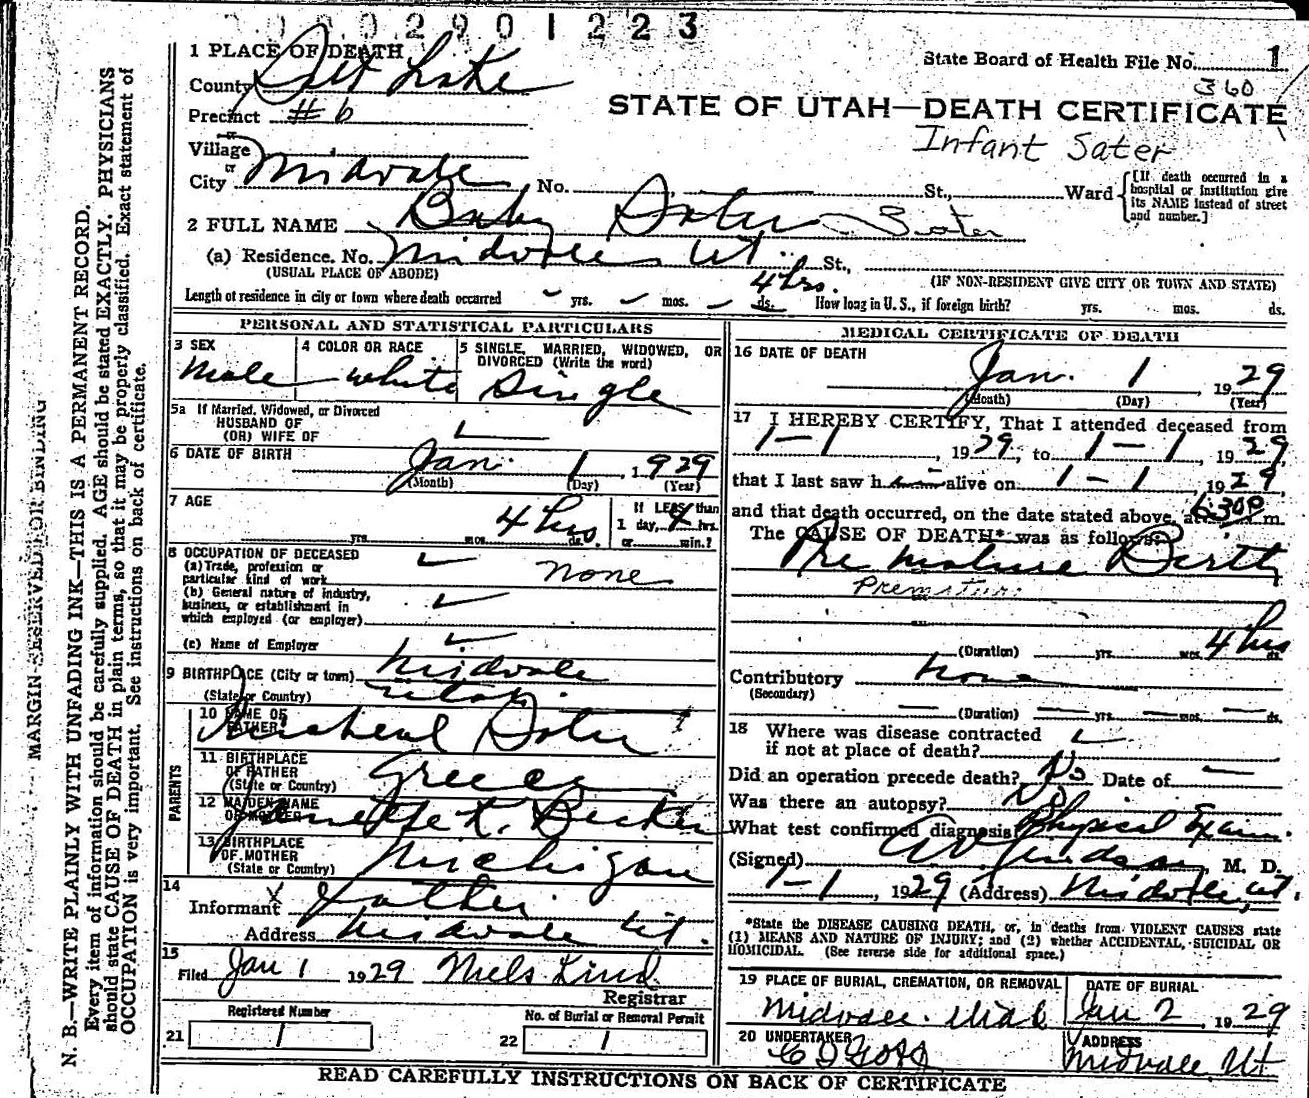 0002901223
1 PLACE OF DEATH
State Board of Health File No. 1
County Salt Lake
360
Precinct #6
STATE OF UTAH—DEATH CERTIFICATE
Infant Sater
Village
or
City Midvale, No. St., Ward
[If death occurred in a hospital or institution give its NAME instead of street and number.]
2 FULL NAME Baby Soter Soter
(a) Residence. No. Midvale Ut. St.,
(USUAL PLACE OF ABODE) (IF NON-RESIDENT GIVE CITY OR TOWN AND STATE)
Length of residence in city or town where death occurred yrs. mos. 4 hrs. ds. How long in U. S., if foreign birth? yrs. mos. ds.
PERSONAL AND STATISTICAL PARTICULARS
3 SEX Male
4 COLOR OR RACE white
5 SINGLE, MARRIED, WIDOWED, OR DIVORCED (Write the word) Single
5a If Married, Widowed, or Divorced
HUSBAND OF
(OR) WIFE OF
6 DATE OF BIRTH Jan. 1, 1929
(Month) (Day) (Year)
7 AGE yrs. mos. 4 hrs. ds.
If LESS than 1 day, 4 hrs. or min.?
8 OCCUPATION OF DECEASED
(a) Trade, profession or particular kind of work none
(b) General nature of industry, business, or establishment in which employed (or employer)
(c) Name of Employer
9 BIRTHPLACE (City or town) Midvale
(State or Country) Utah.
PARENTS
10 NAME OF FATHER Soter
11 BIRTHPLACE OF FATHER (State or Country) Greece
12 MAIDEN NAME OF MOTHER Jennette K. Becker
13 BIRTHPLACE OF MOTHER (State or Country) Michigan
14 Informant x Father.
Address Midvale Ut.
15 Filed Jan 1 1929 Niels Lind
Registrar
Registered Number
21 1
No. of Burial or Removal Permit
22 1
MEDICAL CERTIFICATE OF DEATH
16 DATE OF DEATH
Jan. 1 1929
(Month) (Day) (Year)
17 I HEREBY CERTIFY, That I attended deceased from
1-1, 1929, to 1-1, 1929,
that I last saw h alive on 1-1 1929,
and that death occurred, on the date stated above, at 6:30P m.
The CAUSE OF DEATH* was as follows:
Premature Birth
Prematur.
(Duration) yrs. mos. 4 hrs ds.
Contributory none
(Secondary)
(Duration) yrs. mos. ds.
18 Where was disease contracted
if not at place of death?
Did an operation precede death? No Date of
Was there an autopsy? No
What test confirmed diagnosis? Physical Exam.
(Signed), M. D.
1-1, 1929 (Address) Midvale, Ut.
*State the DISEASE CAUSING DEATH, or, in deaths from VIOLENT CAUSES state
(1) MEANS AND NATURE OF INJURY; and (2) whether ACCIDENTAL, SUICIDAL OR
HOMICIDAL. (See reverse side for additional space.)
19 PLACE OF BURIAL, CREMATION, OR REMOVAL
Midvale. Utah
DATE OF BURIAL
Jan 2, 1929
20 UNDERTAKER
ADDRESS
Midvale, Ut
READ CAREFULLY INSTRUCTIONS ON BACK OF CERTIFICATE
MARGIN RESERVED FOR BINDING
N. B.—WRITE PLAINLY WITH UNFADING INK—THIS IS A PERMANENT RECORD.
Every item of information should be carefully supplied. AGE should be stated EXACTLY. PHYSICIANS
should state CAUSE OF DEATH in plain terms, so that it may be properly classified. Exact statement of
OCCUPATION is very important. See instructions on back of certificate.